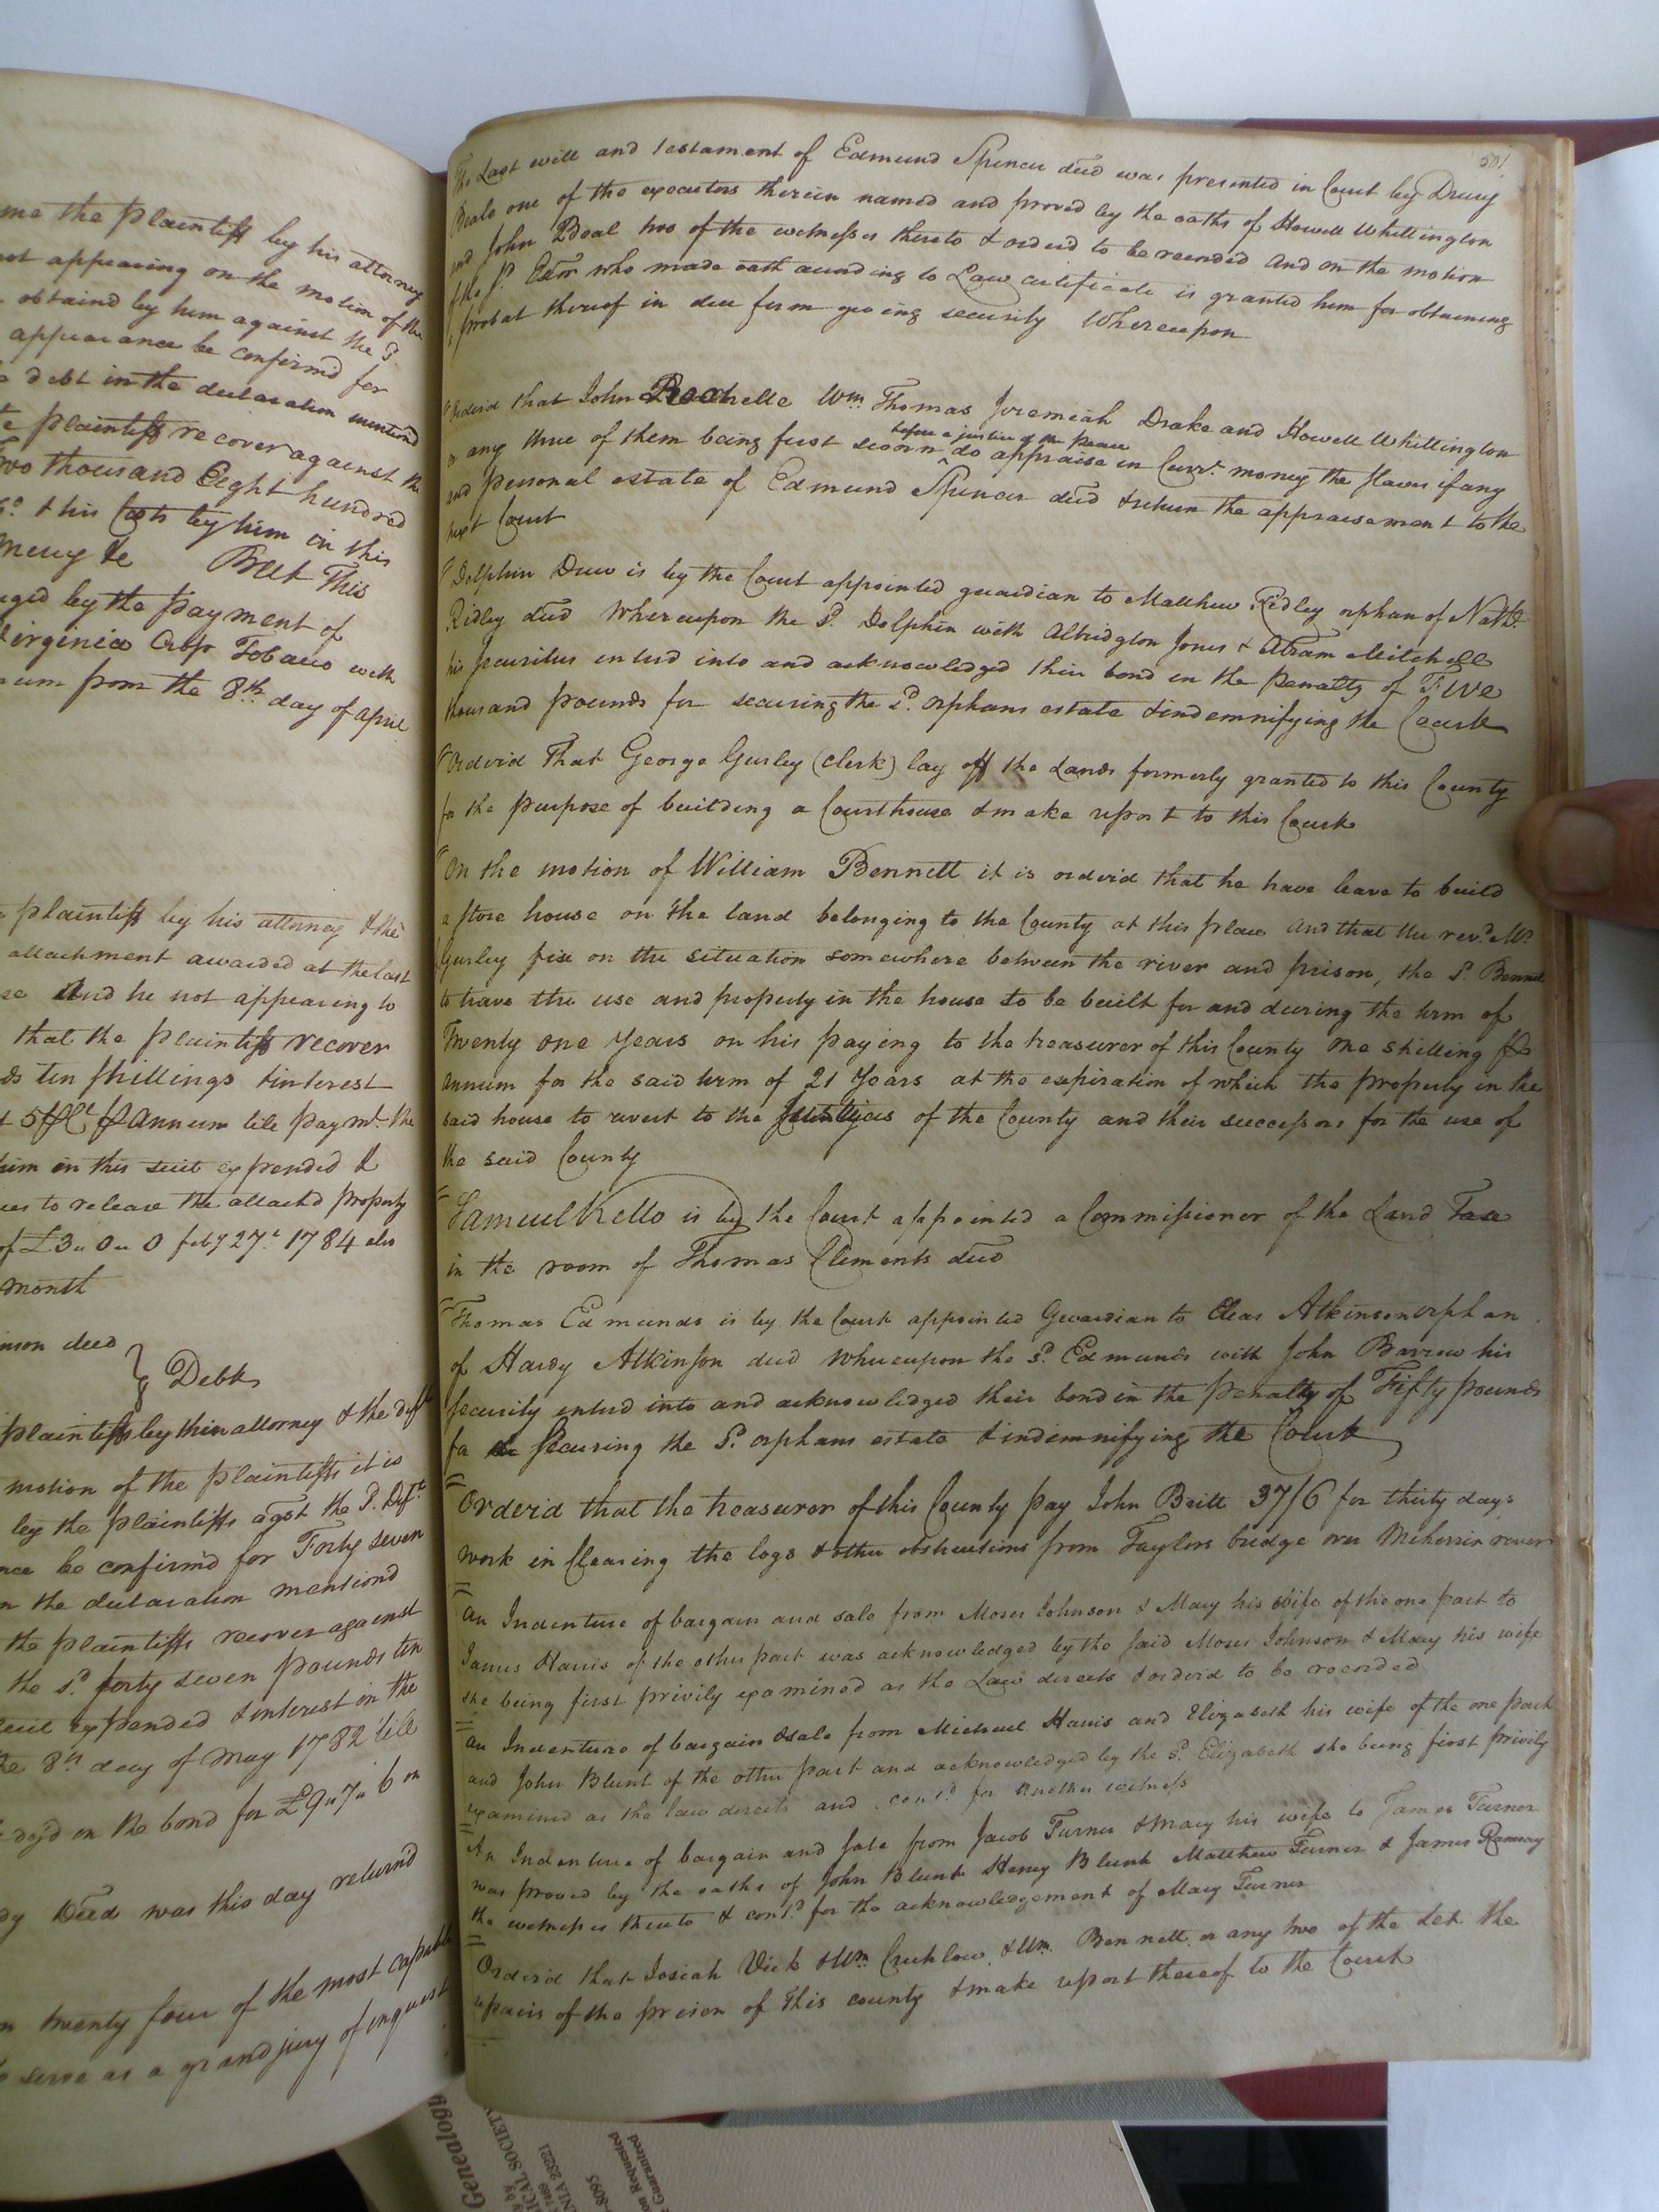 me the plaintiff by his attorney
not appearing on the motion of the
obtaind by him against the sd.
appearance be confirmd for
debt in the declaration mentiond
plaintiff recover against the
two thousand Eight hundred
& his Costs by him in this
But This
by the payment of
Virginia Crop Tobacco with
from the 8th. day of April
plaintiff by his attorney & the
attachment awarded at the last
And he not appearing to
that the plaintiff recover
ten shillings & interest
annum till paymt. the
him in this suit expended &
to release the attachd property
of £3 " 0 " 0 feby 27th 1784 also
month
deced
Debt
plaintiffs by their attorney & the deft
motion of the plaintiffs it is
by the plaintiffs agst the sd. Deft.
be confirmd for Forty seven
the declaration mentiond
the plaintiffs recover against
the sd. forty seven pounds ten
suit expended & interest on the
the 8th day of May 1782 till
on the bond for £9 " 7 " 6 on
Deed was this day returnd
twenty four of the most capable
serve as a grand jury of inquest
501
The Last will and testament of Edmund Spencer deed was presented in Court by Drury
Beale one of the executors therein named and proved by the oaths of Howell Whittington
and John Deal two of the witnesses thereto & orderd to be recorded and on the motion
of the sd. Exor who made oath according to Law certificate is granted him for obtaining
probat thereof in due form giving security Whereupon
Orderd that John Rochelle Wm. Thomas Jeremiah Drake and Howell Whittington
or any three of them being first sworn before a justice of the peace do appraise in Currt. money the slaves if any
and personal estate of Edmund Spencer deed & return the appraisement to the
next Court
Dolphin Drew is by the Court appointed guardian to Matthew Ridley orphan of Nathl.
Ridley deed Whereupon the sd. Dolphin with Albridgton Jones & Abram Mitchell
his securities enterd into and acknowledged their bond in the Penalty of Five
thousand pounds for securing the sd. orphans estate & indemnifying the Court
Orderd That George Gurley (clerk) lay off the Lands formerly granted to this County
for the purpose of building a Courthouse & make report to this Court
On the motion of William Bennett it is orderd that he have leave to build
a store house on the land belonging to the County at this place And that the revd. Mr.
Gurley fix on the situation somewhere between the river and prison, the sd. Bennett
to have the use and property in the house to be built for and during the term of
Twenty one years on his paying to the treasurer of this County one shilling ⅌
annum for the said term of 21 Years at the expiration of which the property in the
said house to revert to the Justices of the County and their successors for the use of
the said County
Samuel Kello is by the Court appointed a Commissioner of the Land Tax
in the room of Thomas Clements deed
Thomas Edmunds is by the Court appointed Gwardian to Elias Atkinson orphan
of Hardy Atkinson deed whereupon the sd. Edmunds with John Barrow his
security enterd into and acknowledged their bond in the penalty of Fifty pounds
for securing the sd. orphans estate & indemnifying the Court
Orderd that the treasurer of this County pay John Britt 37/6 for thirty days
work in Clearing the logs & other obstructions from Taylors bridge over Meherrin river
An Indenture of bargain and sale from Moses Johnson & Mary his Wife of the one part to
James Harris of the other part was acknowledged by the said Moses Johnson & Mary his wife
she being first privily examined as the Law directs & orderd to be recorded
An Indenture of bargain & sale from Michael Harris and Elizabeth his wife of the one part
and John Blunt of the other part and acknowledged by the sd. Elizabeth she being first privily
examined as the law directs and contd. for another witness
An Indenture of bargain and sale from Jacob Turner & Mary his wife to James Turner
was proved by the oaths of John Blunt Henry Blunt Matthew Turner & James Ramsay
the witnesses thereto & contd. for the acknowledgement of Mary Turner
Orderd that Josiah Vick & Wm. Crichlow & Wm. Bennett or any two of the let the
repairs of the prison of this county & make report thereof to the Court
Genealogy